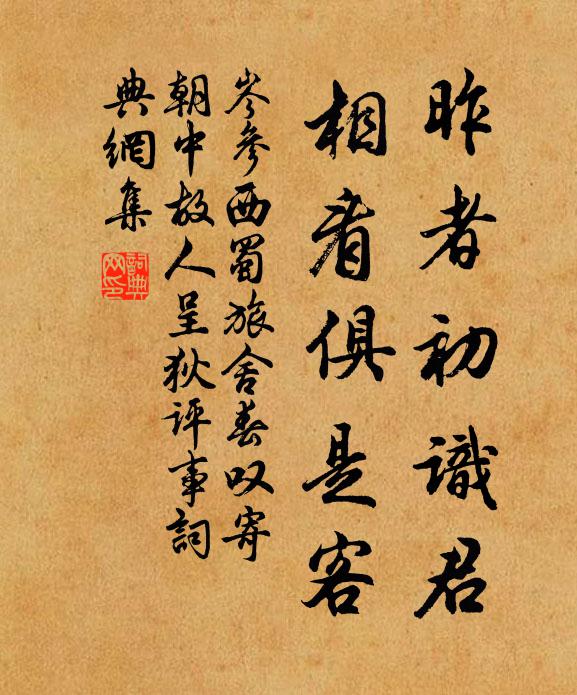 昨者初識君
相看俱是客
岑參西蜀旅舍春叹寄
朝中故人呈狄评事詞
典網集
詞典网印